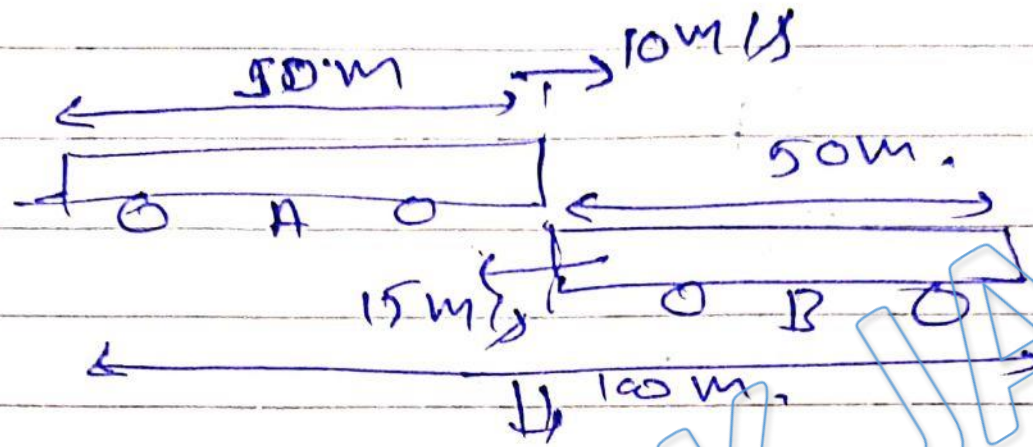 50m → 10m/s
50m.
A
15m/s
B
100m.